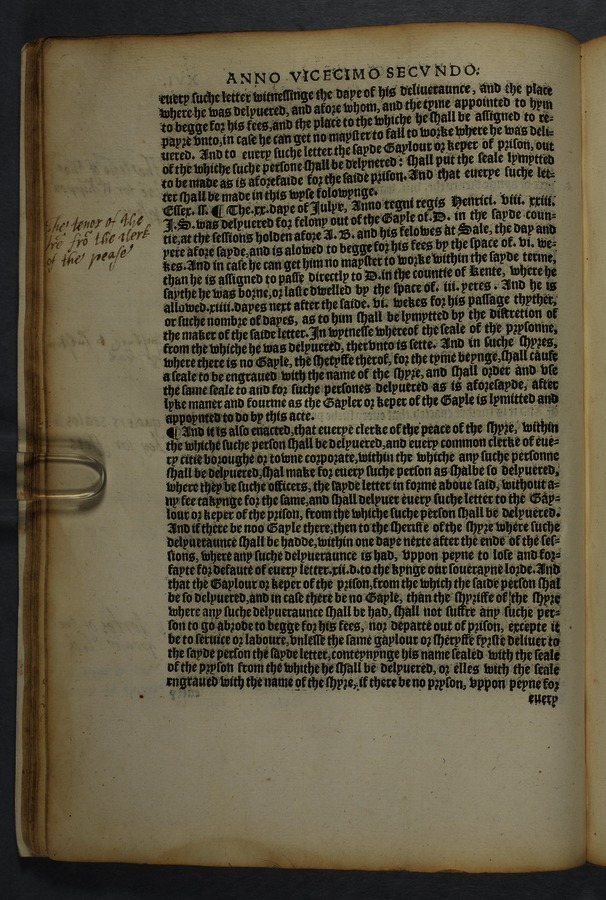 ANNO VICECIMO SECVNDO.
euery suche letter witnessinge the daye of his deliueraunce, and the place
where he was delyuered, and afore whom, and the tyme appointed to hym
to begge for his fees,and the place to the whiche he shall be assigned to re-
payre vnto,in case he can get no mayster to fall to worke where he was deli-
uered. And to euery suche letter the sayde Gaylour or keper of prison, out
of the whiche suche persone shall be delynered : shall put the seale lymytted
to be made as is aforesaide for the saide prison. And that euerye suche let-
ter shall be made in this wyse folowynge.
Essex. ss. ¶ The.xx.daye of Julye, Anno regni regis Henrici. viii. xxiii.
J.S. was delyuered for felony out of the Gayle of.D. in the sayde coun-
tie,at the sessions holden afore A. B. and his felowes at Sale, the day and
yere afore sayde,and is alowed to begge for his fees by the space of. vi. we-
kes.And in case he can get him no mayster to worke within the sayde terme,
than he is assigned to passe directly to D.in the countie of Kente, where he
saythe he was borne,or laste dwelled by the space of. iii. yeres . And he is
allowed.xiiii.dayes next after the saide. vi. wekes for his passage thyther,
or suche nombre of dayes, as to him shall be lymytted by the discretion of
the maker of the saide letter.In wytnesse whereof the seale of the prysonne,
from the whiche he was delyuered, thervnto is sette. And in suche shyres,
where there is no Gayle, the sheryffe therof, for the tyme beynge,shall cause
a seale to be engraued with the name of the shyre, and shall order and vse
the same seale to and for suche persones delyuered as is aforesayde, after
lyke maner and fourme as the Gayler or keper of the Gayle is lymitted and
appoynted to do by this acte.
¶ And it is also enacted,that euerye clerke of the peace of the shyre, within
the whiche suche person shall be delyuered,and euery common clerke of eue-
ry citie boroughe or towne corporate,within the whiche any suche personne
shall be delyuered,shal make for euery suche person as shalbe so delyuered,
where they be suche officers, the sayde letter in forme aboue said, without a-
ny fee takynge for the same,and shall delyuer euery suche letter to the Gay-
lour or keper of the prison, from the whiche suche person shall be delyuered.
And if there be noo Gayle there,then to the sheriffe of the shyre where suche
delyueraunce shall be hadde,within one daye nexte after the ende of the ses-
sions, where any suche delyueraunce is had, vppon peyne to lose and for-
fayte for defaute of euery letter.xii.d.to the kynge our souerayne lorde.And
that the Gaylour or keper of the prison,from the which the saide person shal
be so delyuered,and in case there be no Gayle, than the shyriffe of the shyre
where any suche delyueraunce shall be had, shall not suffre any suche per-
son to go abrode to begge for his fees, nor departe out of prison, excepte it
be to seruice or laboure,vnlesse the same gaylour or sheryffe fyrste deliuer to
the sayde person the sayde letter,conteynynge his name sealed with the seale
of the pryson from the whithe he shall be delyuered, or elles with the seale
engraued with the name of the shyre,if there be no pryson, vppon peyne for
euery
the tenor of the
fro the clerk
of the pease